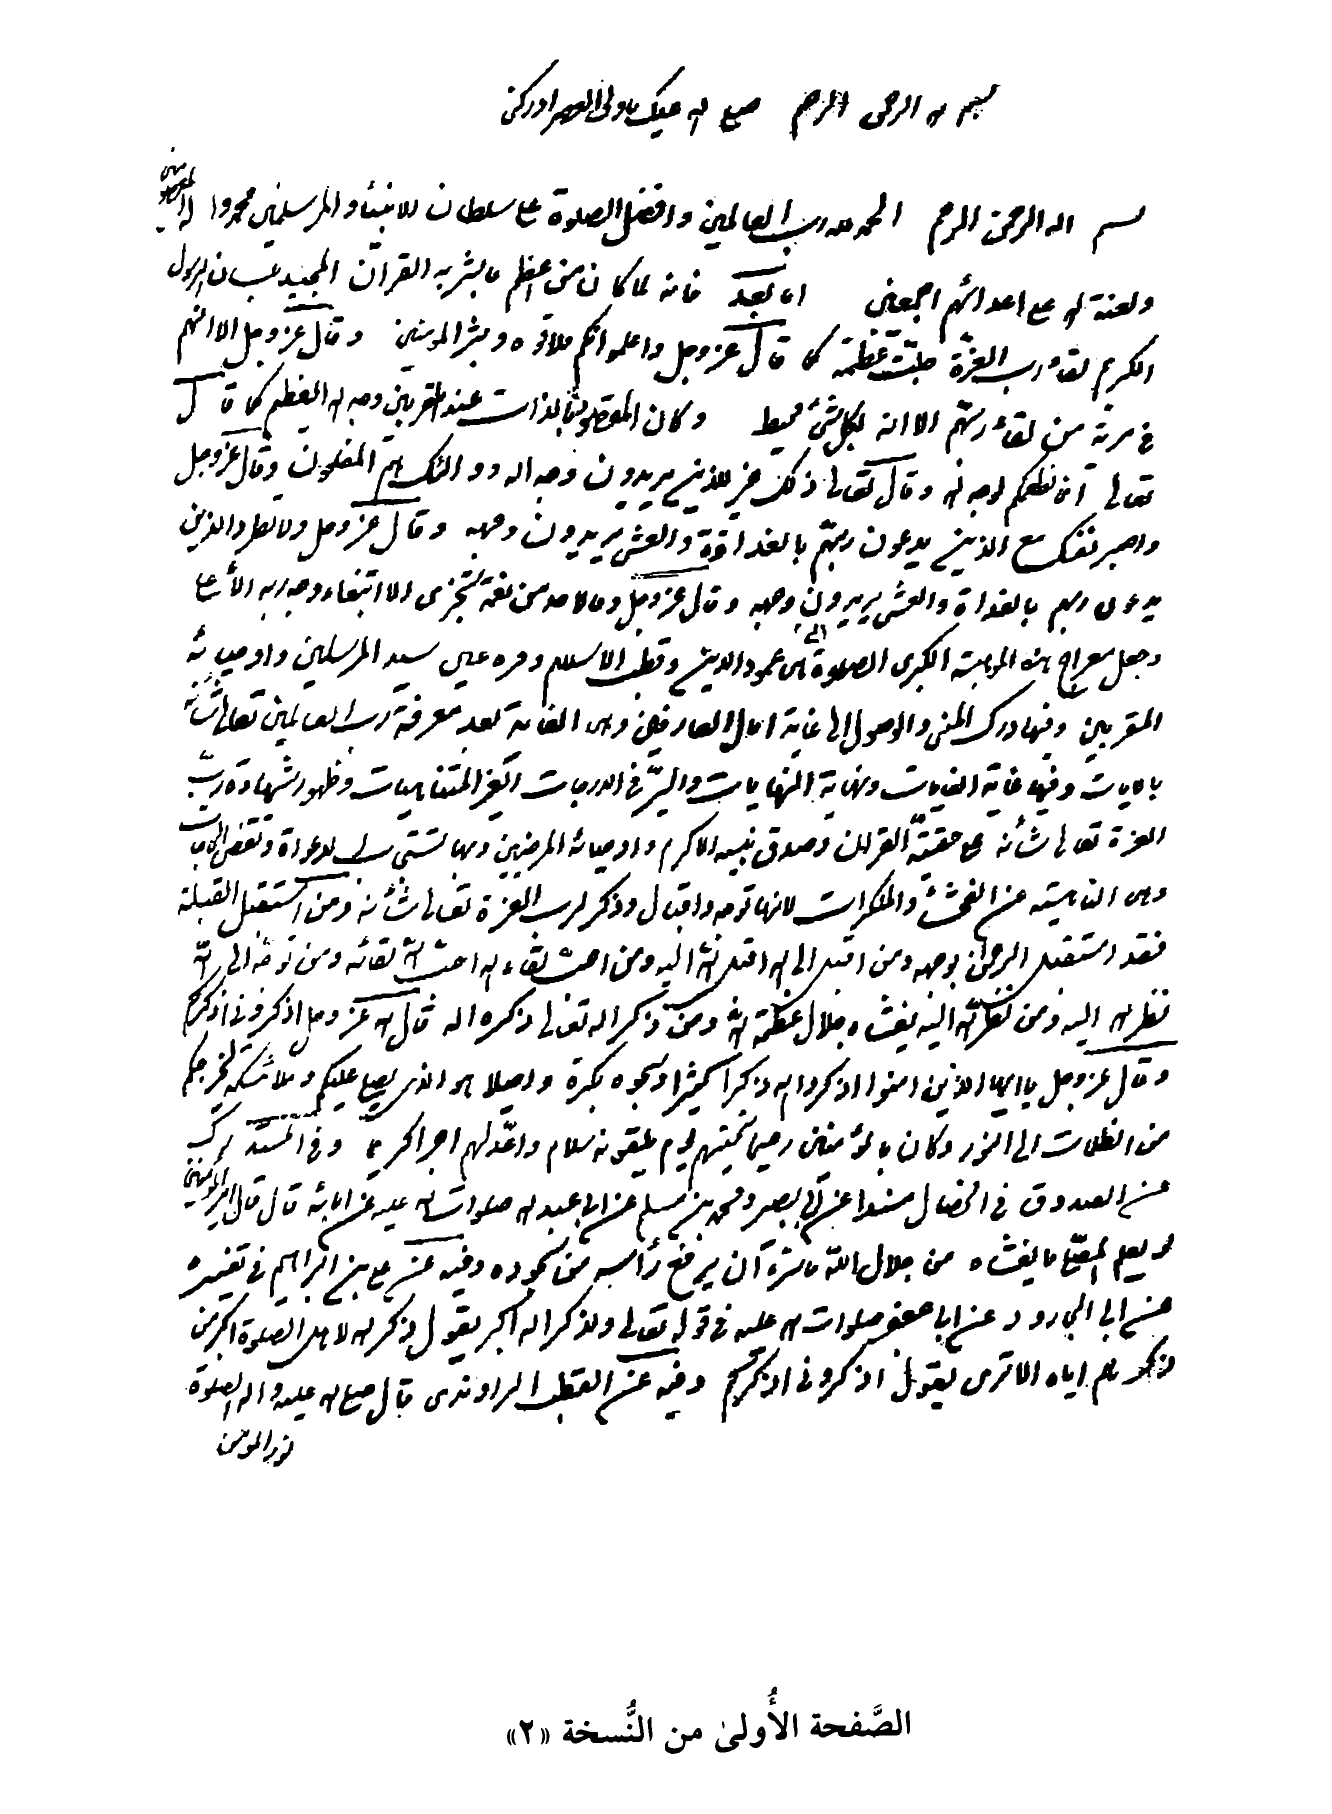 بسم الله الرحمن الرحيم صلى الله عليك يا ولى العصر ادركنى
بسم الله الرحمن الرحيم الحمد لله رب العالمين وافضل الصلوة على سلطان الانبياء والمرسلين محمد وآله المعصومين
ولعنة الله على اعدائهم اجمعين اما بعد فانه لما كان من اعظم ما بشر به القرآن المجيد بلسان الرسول
الكريم لقاء رب العزّة جلّت عظمته كما قال عز وجل واعلموا انكم ملاقوه وبشر المومنين وقال عز وجل الا انهم
فى مرية من لقاء ربهم الا انه بكل شئ محيط وكان المقصود بالذات عند المقربين وجه الله العظيم كما قال
تعالى انما نطعمكم لوجه الله وقال تعالى ذلك خير للذين يريدون وجه الله واولئك هم المفلحون وقال عز وجل
واصبر نفسك مع الذين يدعون ربهم بالغداة والعشى يريدون وجهه وقال عز وجل ولا تطرد الذين
يدعون ربهم بالغداة والعشى يريدون وجهه وقال عز وجل وما لاحد من نعمة تجزى الا ابتغاء وجه ربه الأعلى
وجعل معراج هذه الموهبة الكبرى الصلوة التى هى عمود الدين وقطب الاسلام وقره عين سيد المرسلين واوصيائه
المقربين وفيها درك المنى والوصول الى غاية امال العارفين وهى الغاية بعد معرفة رب العالمين تعالى شأنه
بالايات وفيها غاية الغايات ونهاية النهايات والسير فى الدرجات الغير المتناهيات وظهور شهادة رب
العزة تعالى شأنه على حقيقة القرآن وصدق نبيه الاكرم واوصيائه المرضيين وبها تستجاب الدعوات وتقضى الحاجات
وهى الناهية عن الفحشاء والمنكرات لانها توجه واقبال وذكر لرب العزة تعالى شأنه ومن استقبل القبلة
فقد استقبل الرحمن بوجهه ومن اقبل الى الله اقبل الله اليه ومن احب لقاء الله احب الله لقائه ومن توجه الى الله
نظر الله اليه ومن نظر الله اليه يغشاه جلال عظمة الله ومن ذكر الله تعالى ذكره الله قال الله عز وجل اذكرونى اذكركم
وقال عز وجل يا ايها الذين امنوا اذكروا الله ذكرا كثيرا وسبحوه بكرة واصيلا هو الذى يصلى عليكم وملائكته ليخرجكم
من الظلمات الى النور وكان بالمؤمنين رحيما تحيتهم يوم يلقونه سلام واعدّ لهم اجرا كريما وفى المستدرك
عن الصدوق فى الخصال مسندا عن ابى بصير ومحمد بن مسلم عن ابى عبد الله صلوات الله عليه عن ابائه قال قال امير المؤمنين
لو يعلم المصلّى ما يغشاه من جلال الله ما سرّه أن يرفع رأسه من سجوده وفيه عن على بن ابراهيم فى تفسيره
عن ابى الجارود عن ابا جعفر صلوات الله عليه فى قوله تعالى ولذكر الله اكبر يقول ذكر الله لاهل الصلوة اكبر من
ذكرهم اياه الا ترى يقول اذكرونى اذكركم وفيه عن القطب الراوندى قال صلى الله عليه واله الصلوة
نور المومن
الصَّفحة الأُولىٰ من النُّسخة «٢»